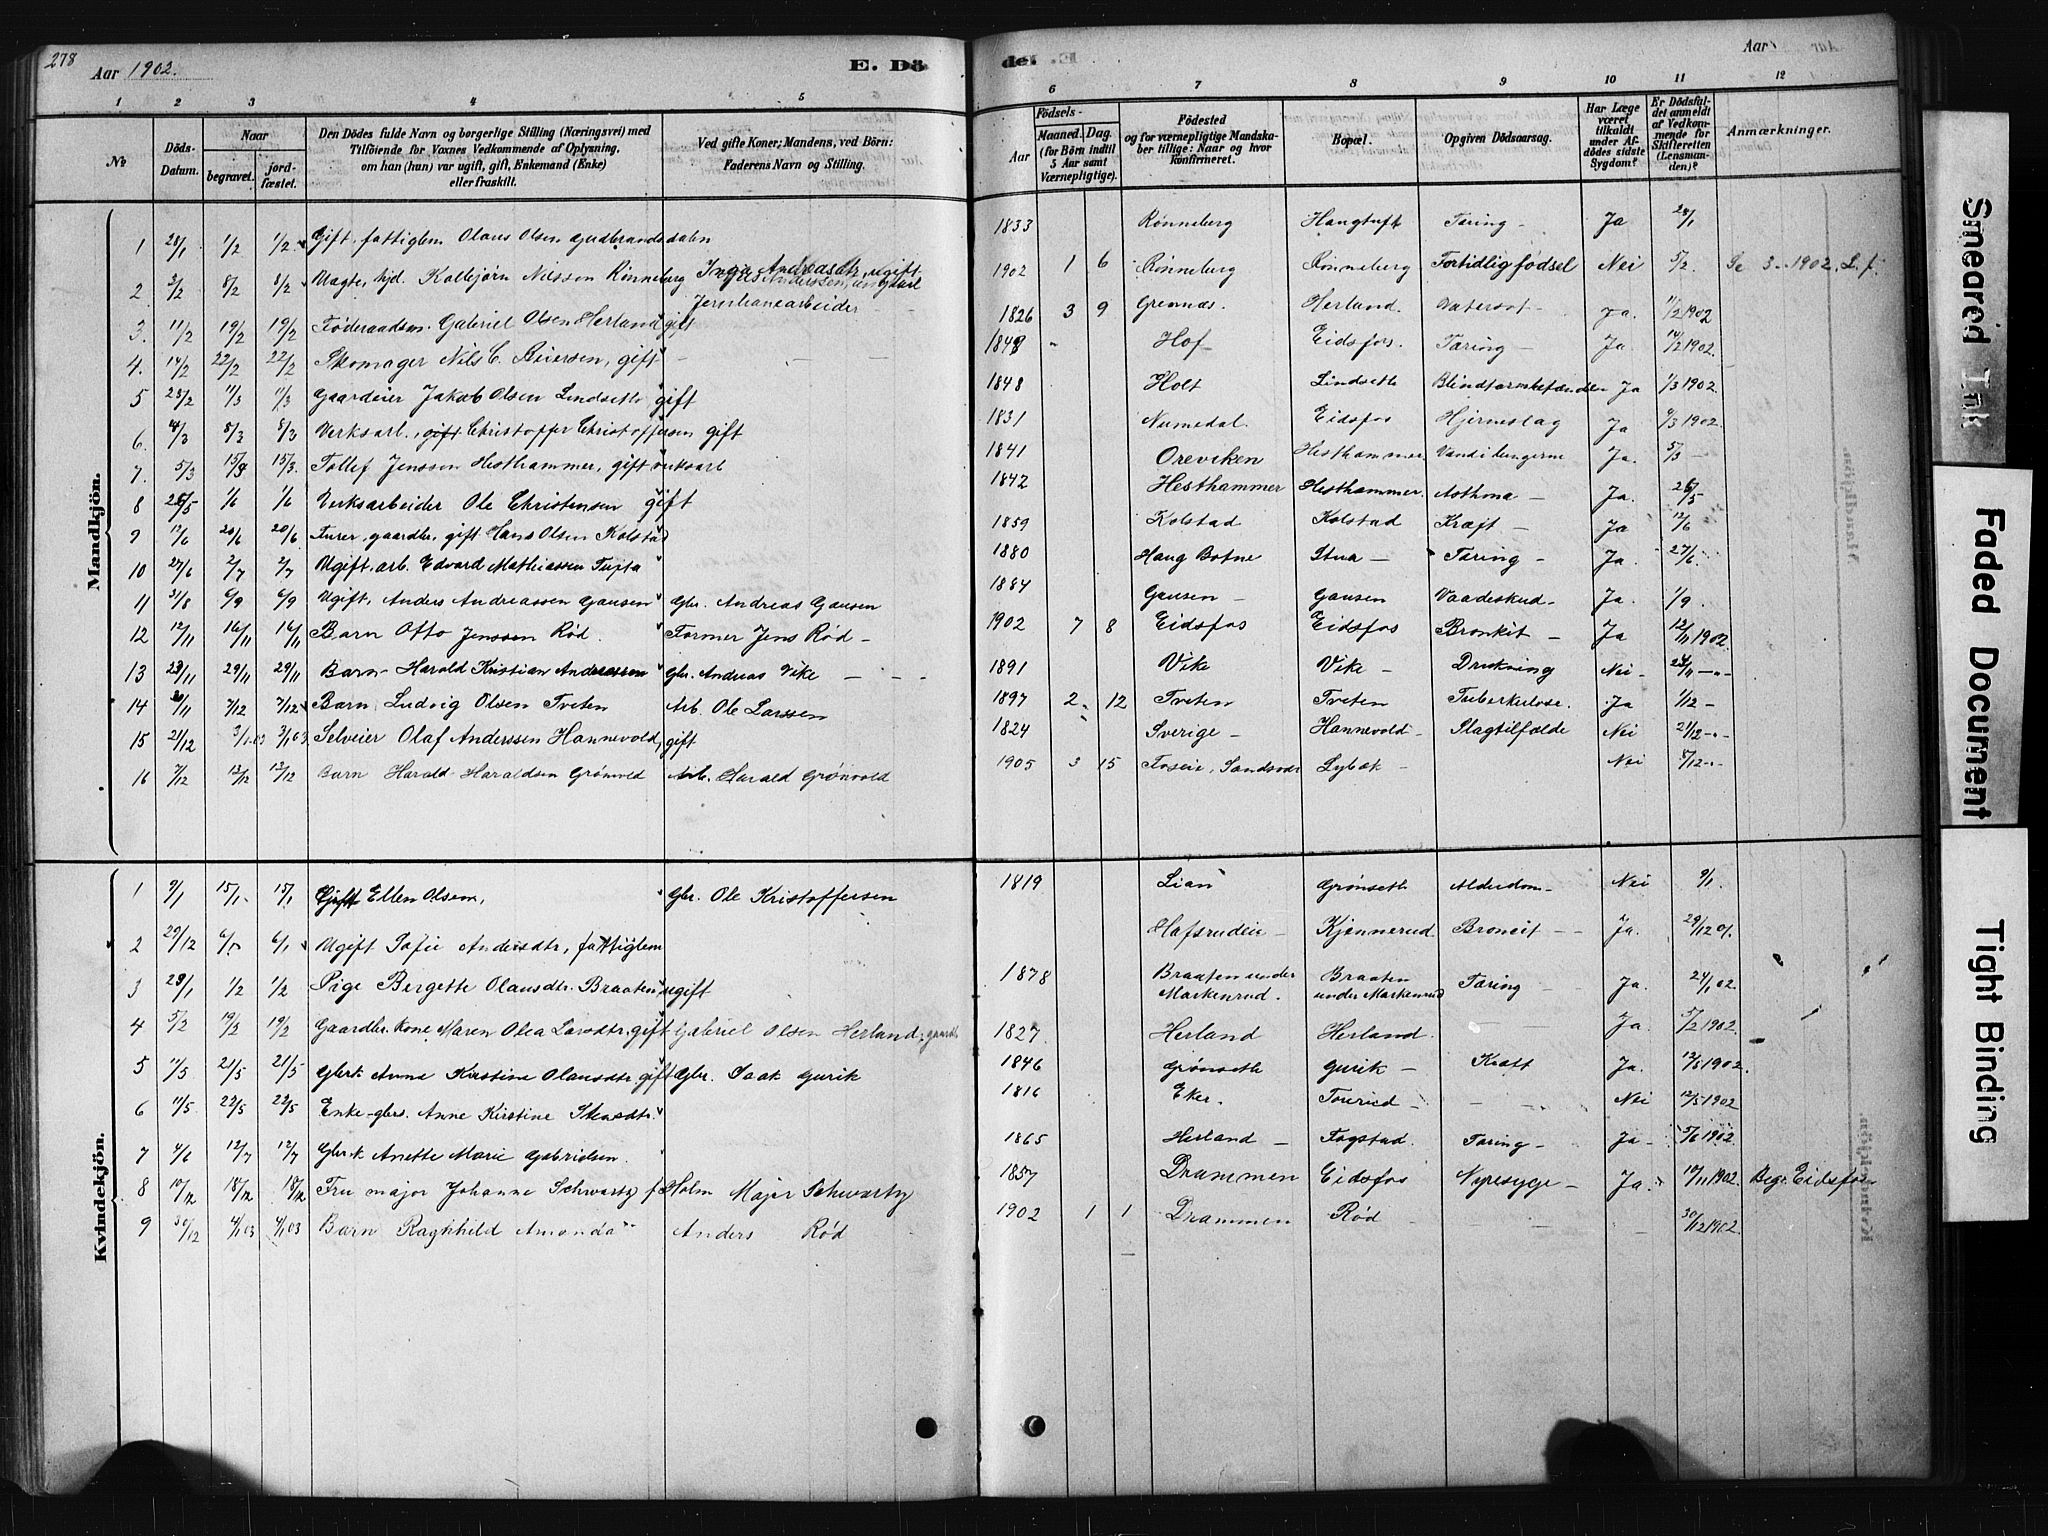 278
Aar 1902.
E. Dö
de. E.
Aar
1 2 3 4 5 6 7 8 9 10 11 12
No
Döds-Datum.
Naar
begravet.
jord-fæstet.
Den Dödes fulde Navn og borgerlige Stilling (Næringsvei) med
Tilföiende for Voxnes Vedkommende af Oplysning,
om han (hun) var ugift, gift, Enkemand (Enke)
eller fraskilt.
Ved gifte Koner; Mandens, ved Börn:
Faderens Navn og Stilling.
Födsels-
Aar
Maaned. Dag.
(for Börn indtil
5 Aar samt
Værnepligtige).
Födested
og for værnepligtige Mandska-
ber tillige: Naar og hvor
konfirmeret.
Bopæl.
Opgiven Dödsaarsag.
Har Læge
været
tilkaldt
under Af-
dödes sidste
Sygdom?
Er Dödsfal-
det anmeldt
af Vedkom-
mende for
Skifteretten
(Lensman-
den)?
Anmærkninger.
Mandkjön.
1 28/1 1/2 1/2 Gift, fattiglem Olaus Olsen Gudbrandsdalen 1833 Rønneberg Haugtuft Tæring - Ja 28/1
2 3/2 8/2 8/2 Uægte, hjd. Rønneberg Inga Andreasdtr, ugift Jernbanearbeider 1902 1 6 Rønneberg Rønneberg Fortidlig fødsel Nei 5/2. 3 - 1902. L. f.
3. 11/2 19/2 19/2 Føderaadsm. Gabriel Olsen Herland gift 1826 3 9 Grennæs. Herland. Vatersot - Ja. 11/2 1902
4. 14/2 22/2 22/2 Skomager Nils C. Beiersen, gift 1848 Hof Eidsfos. Tæring - Ja 14/2 1902.
5 23/2 1/3 1/3 Gaardeier Jakob Olsen Lindseth gift 1848 Holt Lindseth Ja 1/3 1902
6. 4/3 8/3 8/3 Verksarb. Christoffer Christoffersen gift 1831 Numedal. Eidsfos Hjerneslag Ja 6/3 1902.
7. 5/3 15/3 15/3. Tollef Jensson Hesthammer, gift verksarb 1841 Oreviken Hesthammer Vand i lungerne Ja. 5/3 -
8 26/5 1/6 1/6 Verksarbeider Ole Christensen gift 1842 Hesthammer Hesthammer. Asthma - Ja. 26/5
9 12/6 20/6 20/6 Furer, gaardbr, gift Hans Olsen Kolstad 1859 Kolstad Kolstad Kræft - Ja 12/6
10 27/6 2/7 2/7 Ugift, arb. Edvard Mathiassen Tufta 1880 Haug Botne Stua - Tæring - Ja 27/6.
11 31/8 6/9 6/9 Ugift, Anders Andreassen Gausen Gbr. Andreas Gausen 1884 Gausen - Gausen Vaadeskud - Ja. 1/9.
12 12/11 16/11 16/11 Barn Otto Jenssen Rød. Former Jens Rød - 1902 7 8 Eidsfos Eidsfos Bronkit - Ja 12/11 1902.
13 23/11 29/11 29/11 Barn - Harold Kristian Andreassen Gbr. Andreas Vike 1891 Vike Vike - Drukning Nei - 24/11
14 30/11 7/12 7/12 Barn Ludvig Olsen Tveten Arb. Ole Larssen 1897 2 12 Tveten Tveten Tuberkulose. Ja 1/12 -
15 21/12 3/1 03 3/1 03. Selveier Olaf Anderssen Hannevold, gift 1824 Sverige - Hannevold - Slagtilfælde Nei 21/12
16 7/12 12/12 12/12 Barn Harald Haraldsen Grønvold Arb. Harald Grønvold 1905 3 15 Foseie, Sandsvær Lybæk - Nei 8/12
Kvindekjön.
1 9/1 15/1 15/1 Gift Ellen Olsen, Gbr. Ole Kristoffersen 1819 Lian Grønseth Alderdom - Nei 9/1.
2 29/12 6/1 6/1 Ugift Sofie Andersdtr, fattiglem Hafsrudeie - Kjennerud Broncit - Ja. 29/12 01.
3 23/1 1/2 1/2 Pige Bergette Olausdtr. Braaten ugift 1878 Braaten under Markenrud. Braaten under Markenrud Tæring - Ja. 24/1 02.
4 5/2 19/2 19/2 Gaardbr. Kone Maren Olea Larsdtr. gift Gabriel Olsen Herland, gaardb. 1827 Herland Herland. Ja. 5/2 1902.
5 11/5 21/5 21/5 Gbrk. Anne Kirstine Olausdtr gift Gbr. Isak Gurik 1846 Grønseth Gurik - Kræft Ja. 12/5 1902.
6 11/5. 22/5 22/5 Enke gbrs. Anne Kirstine Stensdtr. 1816 Eker. Tourud - Nei 12/5 1902
7 4/6 12/7 12/7 Gbrk Anette Marie Gabrielsen. 1865 Herland - Fogstad. Tæring - Ja - 5/6 1902.
8 10/12 18/12 18/12 Fru major Johanne Schwartz f. Holm Major Schwartz 1857 Drammen Eidsfos Nyresyge - Ja. 10/11 1902. Begr. Eidsfos
9 30/12 4/1 03 4/1 03 Barn Raghhild Amanda Anders Rød 1902 1 1 Drammen Rød 30/12 1902.
Smeared Ink
Faded Document
Tight Binding